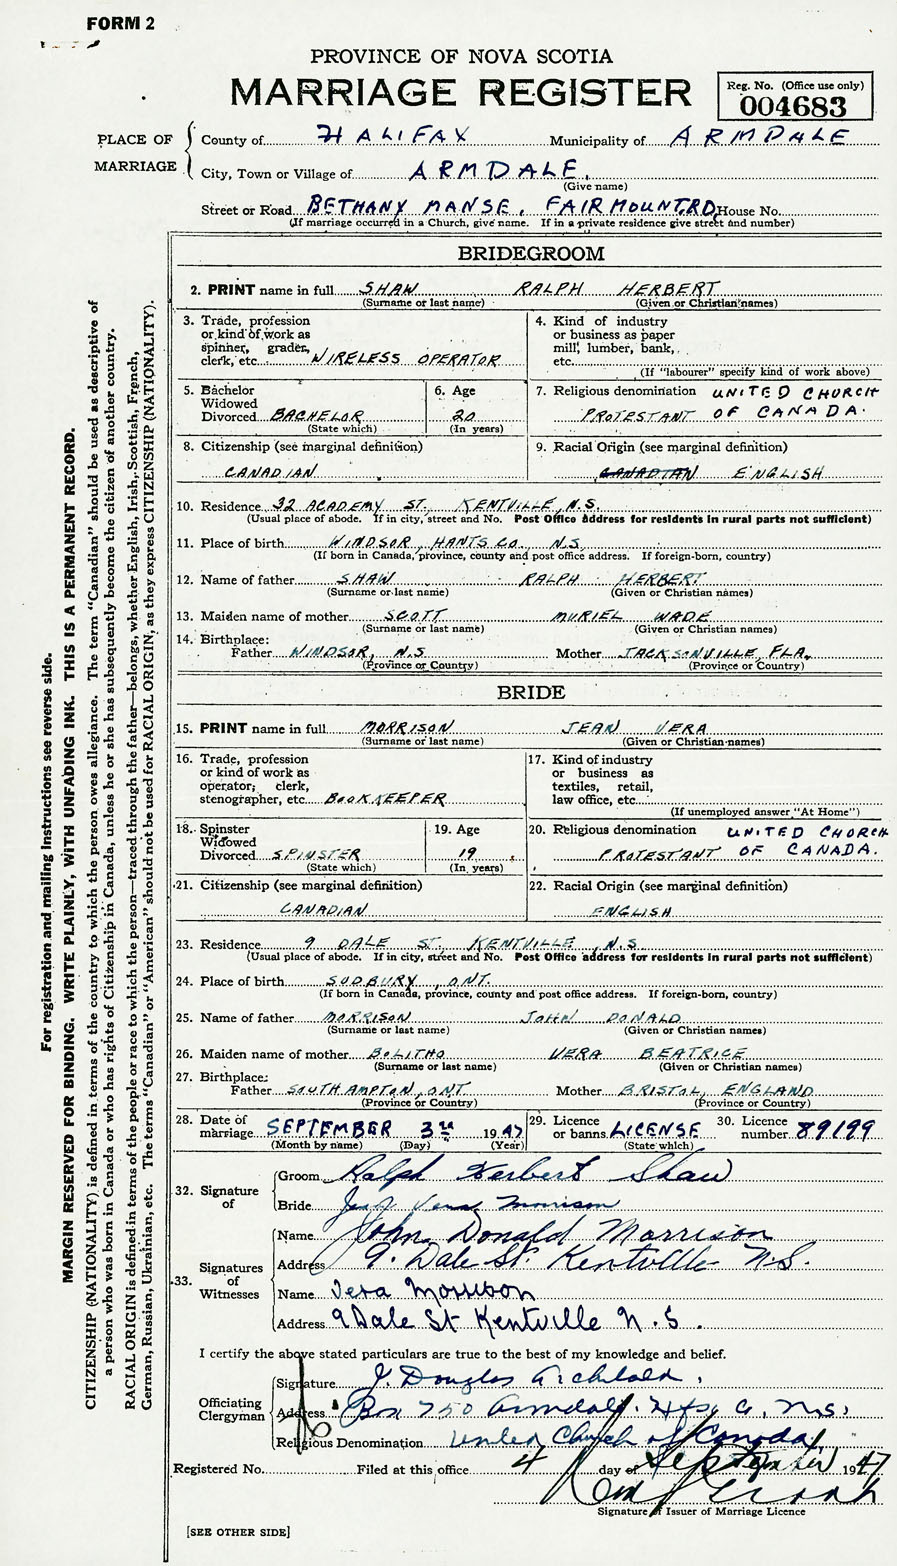 FORM 2
PROVINCE OF NOVA SCOTIA
MARRIAGE REGISTER
Reg. No. (Office use only)
004683
PLACE OF MARRIAGE
County of HALIFAX Municipality of ARMDALE
City, Town or Village of ARMDALE.
(Give name)
Street or Road BETHANY MANSE, FAIRMOUNT RD, House No.
(If marriage occurred in a Church, give name. If in a private residence give street and number)
BRIDEGROOM
2. PRINT name in full SHAW RALPH HERBERT
(Surname or last name) (Given or Christian names)
3. Trade, profession
or kind of work as
spinner, grader,
clerk, etc. WIRELESS OPERATOR
4. Kind of industry
or business as paper
mill, lumber, bank,
etc.
(If "labourer" specify kind of work above)
5. Bachelor
Widowed
Divorced BACHELOR
(State which)
6. Age
20
(In years)
7. Religious denomination UNITED CHURCH
PROTESTANT OF CANADA.
8. Citizenship (see marginal definition)
CANADIAN
9. Racial Origin (see marginal definition)
CANADIAN ENGLISH
10. Residence 32 ACADEMY ST. KENTVILLE, N.S.
(Usual place of abode. If in city, street and No. Post Office Address for residents in rural parts not sufficient)
11. Place of birth WINDSOR, HANTS CO. N.S.
(If born in Canada, province, county and post office address. If foreign-born, country)
12. Name of father SHAW RALPH HERBERT
(Surname or last name) (Given or Christian names)
13. Maiden name of mother SCOTT MURIEL WADE
(Surname or last name) (Given or Christian names)
14. Birthplace:
Father WINDSOR, N.S Mother JACKSONVILLE, FLA.
(Province or Country) (Province or Country)
BRIDE
15. PRINT name in full MORRISON JEAN VERA
(Surname or last name) (Given or Christian names)
16. Trade, profession
or kind of work as
operator, clerk,
stenographer, etc. BOOKKEEPER
17. Kind of industry
or business as
textiles, retail,
law office, etc.
(If unemployed answer "At Home")
18. Spinster
Widowed
Divorced SPINSTER
(State which)
19. Age
19
(In years)
20. Religious denomination UNITED CHURCH
PROTESTANT OF CANADA.
21. Citizenship (see marginal definition)
CANADIAN
22. Racial Origin (see marginal definition)
ENGLISH
23. Residence 9 DALE ST. KENTVILLE, N.S.
(Usual place of abode. If in city, street and No. Post Office address for residents in rural parts not sufficient)
24. Place of birth SUDBURY, ONT.
(If born in Canada, province, county and post office address. If foreign-born, country)
25. Name of father MORRISON JOHN DONALD
(Surname or last name) (Given or Christian names)
26. Maiden name of mother BOLITHO VERA BEATRICE
(Surname or last name) (Given or Christian names)
27. Birthplace:
Father SOUTHAMPTON, ONT. Mother BRISTOL, ENGLAND
(Province or Country) (Province or Country)
28. Date of
marriage SEPTEMBER 3rd 1947
(Month by name) (Day) (Year)
29. Licence
or banns LICENSE
(State which)
30. Licence
number 89199
32. Signature of
Groom Ralph Herbert Shaw
Bride Jean Vera Morrison
33. Signatures of Witnesses
Name John Donald Morrison
Address 9. Dale St. Kentville N.S.
Name Vera Morrison
Address 9 Dale St Kentville N.S.
I certify the above stated particulars are true to the best of my knowledge and belief.
Officiating Clergyman
Signature J. Douglas Archibald.
Address Box 750 Armdale. Hfx Co. N.S.
Religious Denomination United Church of Canada
Registered No. Filed at this office 4 day of September 1947
Signature of Issuer of Marriage Licence
[SEE OTHER SIDE]
For registration and mailing instructions see reverse side.
MARGIN RESERVED FOR BINDING. WRITE PLAINLY, WITH UNFADING INK. THIS IS A PERMANENT RECORD.
CITIZENSHIP (NATIONALITY) is defined in terms of the country to which the person owes allegiance. The term "Canadian" should be used as descriptive of
a person who was born in Canada or who has rights of Citizenship in Canada, unless he or she has subsequently become the citizen of another country.
RACIAL ORIGIN is defined in terms of the people or race to which the person—traced through the father—belongs, whether English, Irish, Scottish, French,
German, Russian, Ukrainian, etc. The terms "Canadian" or "American" should not be used for RACIAL ORIGIN, as they express CITIZENSHIP (NATIONALITY).